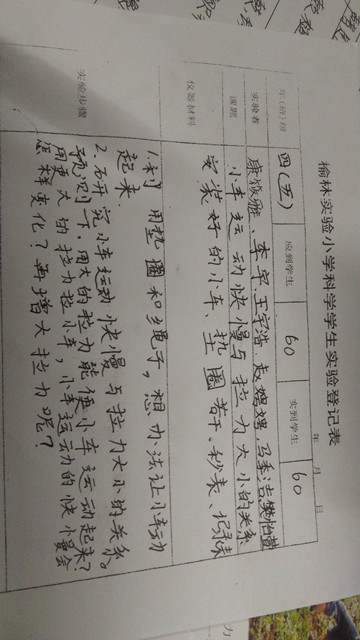 榆林实验小学科学学生实验登记表
年 月 日
年(班)级 四(五) 应到学生 60 实到学生 60
实验者 康 雅、李宇、王宇浩、赵娉娉、马秀洁 樊怡萱
课题 小车运动快慢与拉力大小的关系
仪器材料 安装好的小车、垫圈若干、秒表、记录表
实验步骤
1. 利用垫圈和绳子,想办法让小车动
起来
2. 研究小车运动快慢与拉力大小的关系。
预测一下,用大的拉力能使小车运动起来?
用更大的拉力拉小车,小车运动的快慢会
怎样变化?再增大拉力呢?